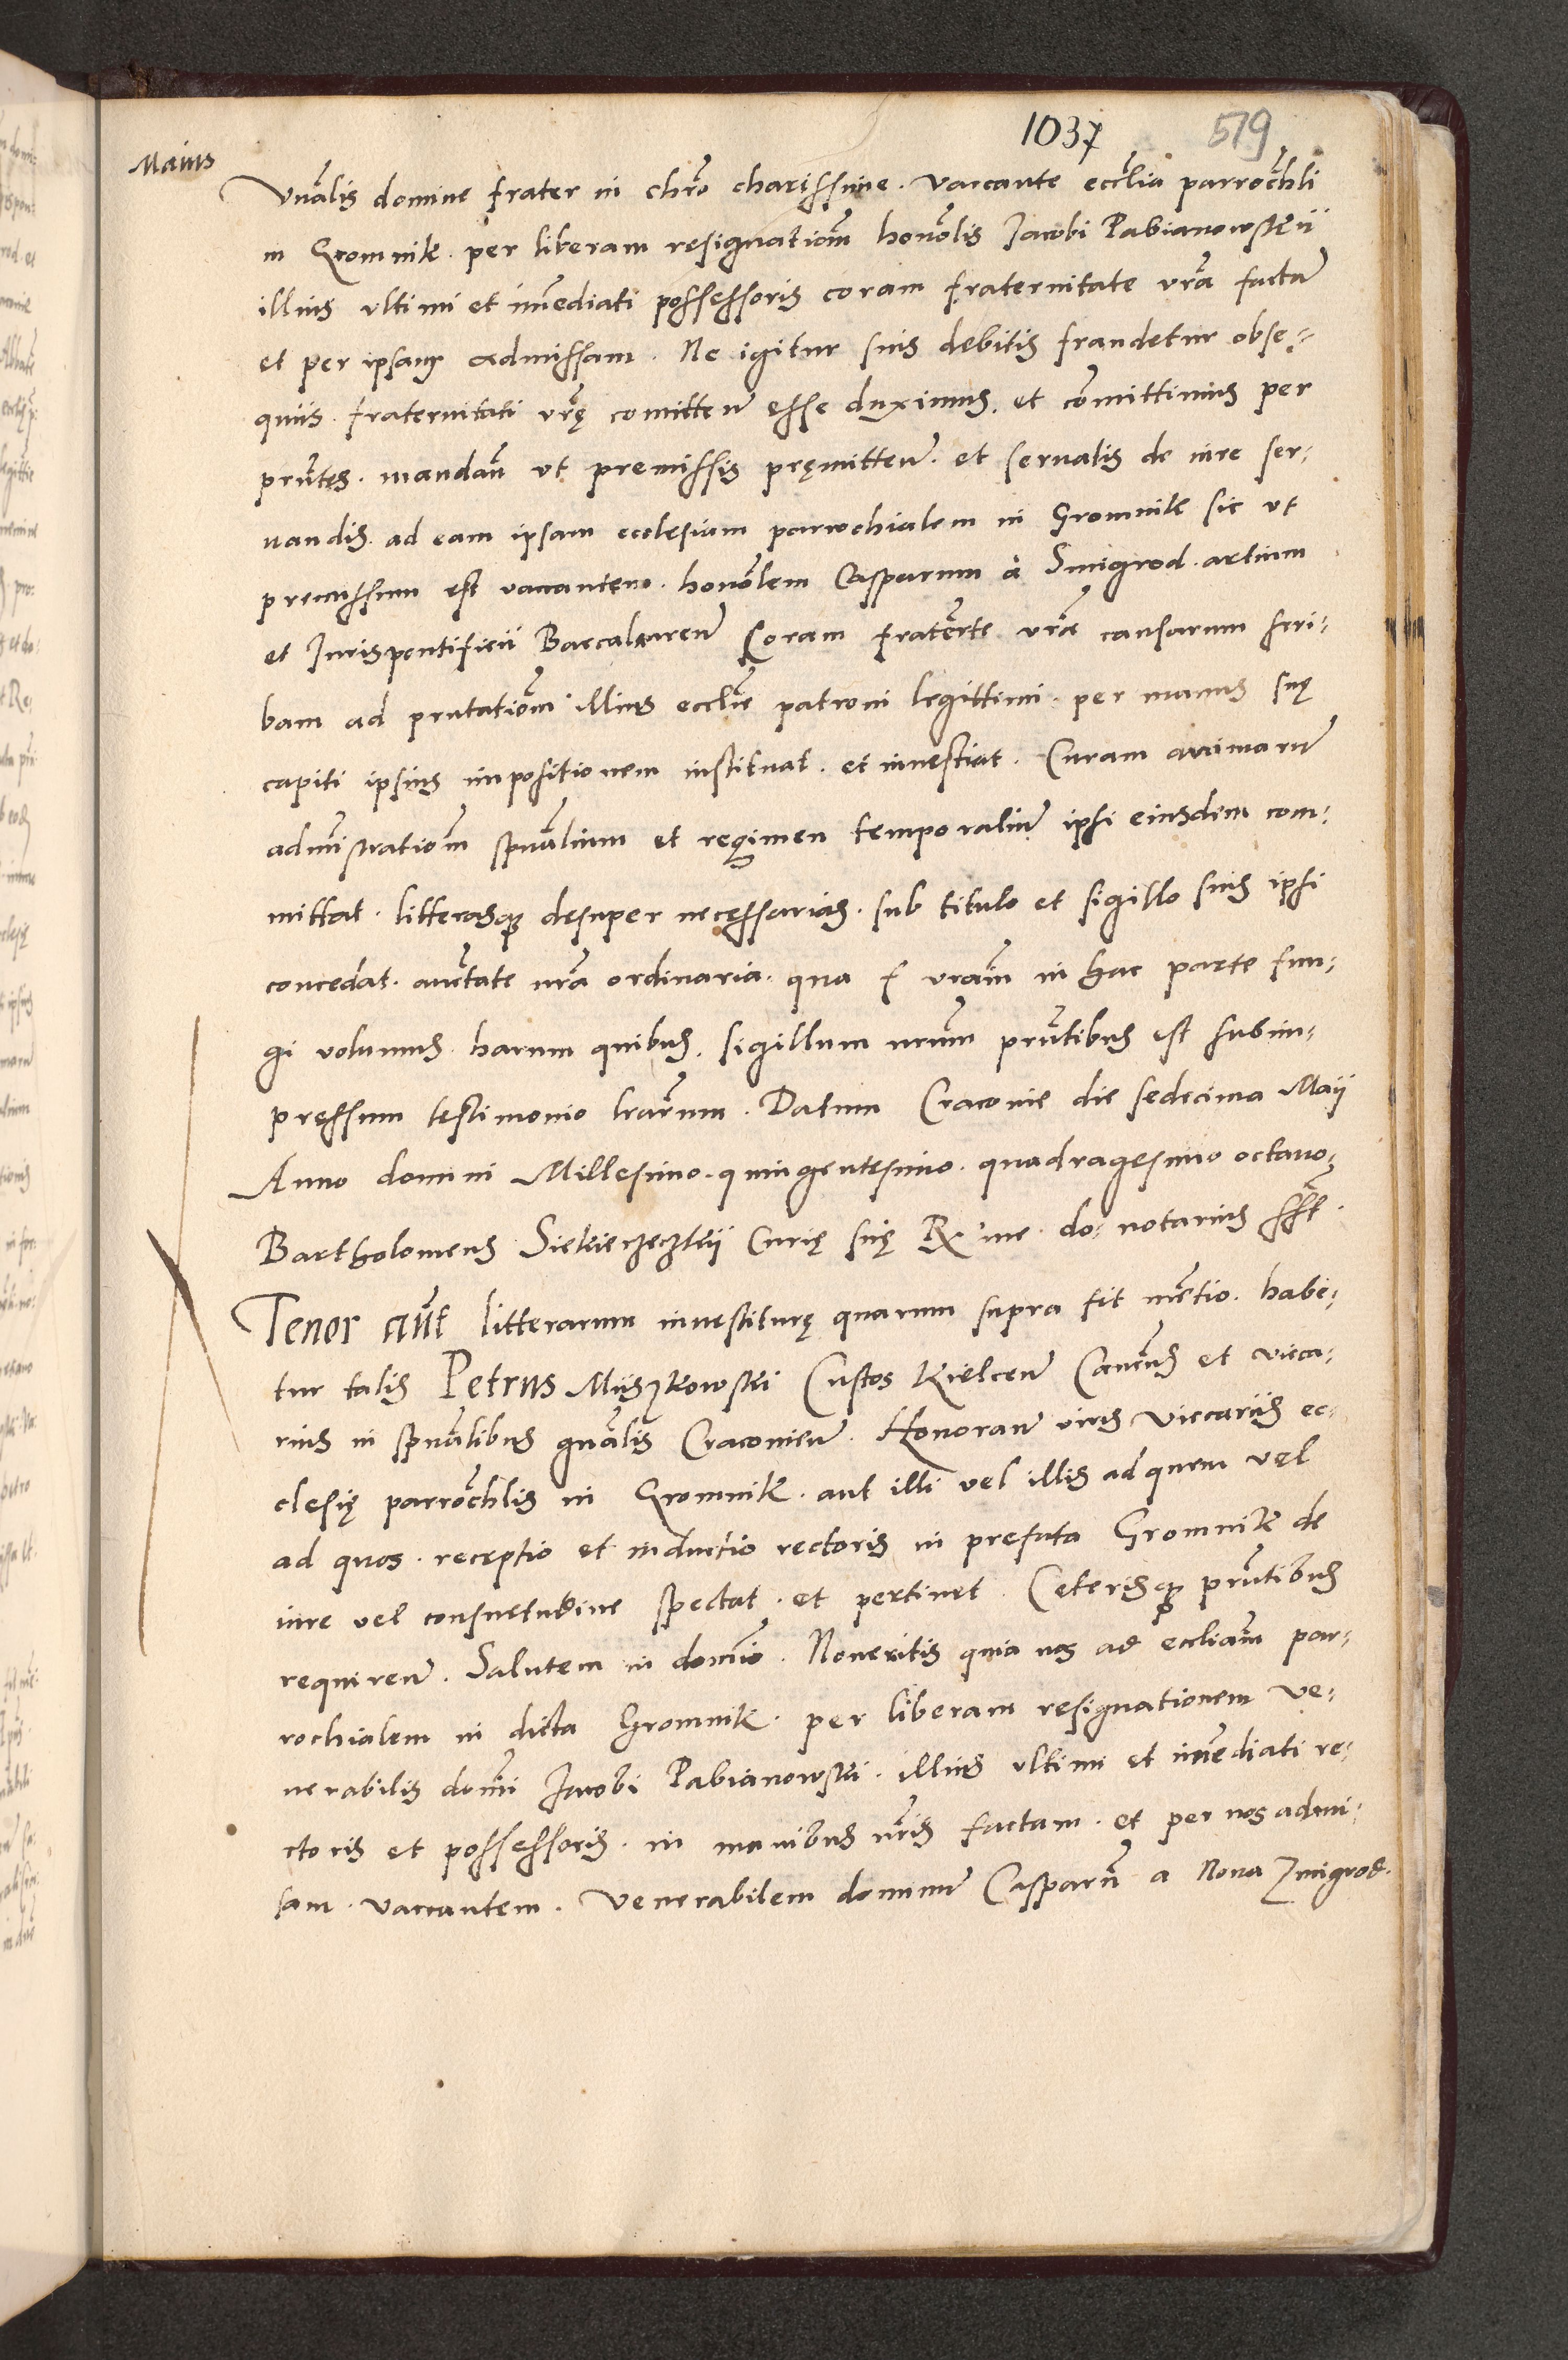 1037 519
Maius
Vnalis domine frater in chro charissime. vaccante ecclia parrochli
in Gromnik. per liberam resignationem honolis Jacobi Pabianowskii
illius vltimi et inmediati possessoris coram fraternitate vra facta
et per ipsam admissam. Ne igitur suis debitis fraudetur obse-
quiis. fraternitati vrę comitten esse duximus. et committimus per
pntes. mandan vt premissis pręmitten. et seruatis de iure ser-
uandis. ad eam ipsam ecclesiam parrochialem in Gromnik sic vt
premissum est vacantem. honolem Casparum à Smigrod. artium
et Jurispontificii Baccalaureu Coram fraterte vra causarum scri-
bam ad pntationem illius ecclie patroni legittimi. per manus suę
capiti ipsius impositionem instituat. et inuestiat. Curam animaru
admistrationem spualium et regimen temporaliu ipsi eiusdem com-
mittat. litterasq desuper necessarias. sub titulo et sigillo suis ipsi
concedat. auctate nra ordinaria. qua f vram in hac parte fun-
gi volumus. harum quibus. sigillum nrum pntibus est subim-
pressum testimonio lrarum. Datum Craconie die sedecima Maij
Anno domini Millesimo. quingentesimo. quadragesimo octauo.
Bartholomeus curię suę R me. do: notarius sst.
Tenor aut litterarum inuestiturę quarum supra fit mentio. habe-
tur talis Petrus Miiszkowski Custos Kielcen Cancus et vica-
rius in spualibus gnalis Cracouien. Honoran viris viccariis ec-
clesię parrochlis in Gromnik. aut illi vel illis ad quem vel
ad quos. receptio et inductio rectoris in prefata Gromnik de
iure vel consuetudine spectat. et pertinet. Ceterisq pntibus
requiren. Salutem in domio. Noueritis quia nos ad eccliam par-
rochialem in dicta Gromnik. per liberam resignationem ve-
nerabilis domi Jacobi Pabianowski. illius vltimi et inmediati re-
ctoris et possessoris. in manibus nris factam. et per nos admi-
sam. vaccantem. Venerabilem dominu Casparu a Noua Zmigrod.